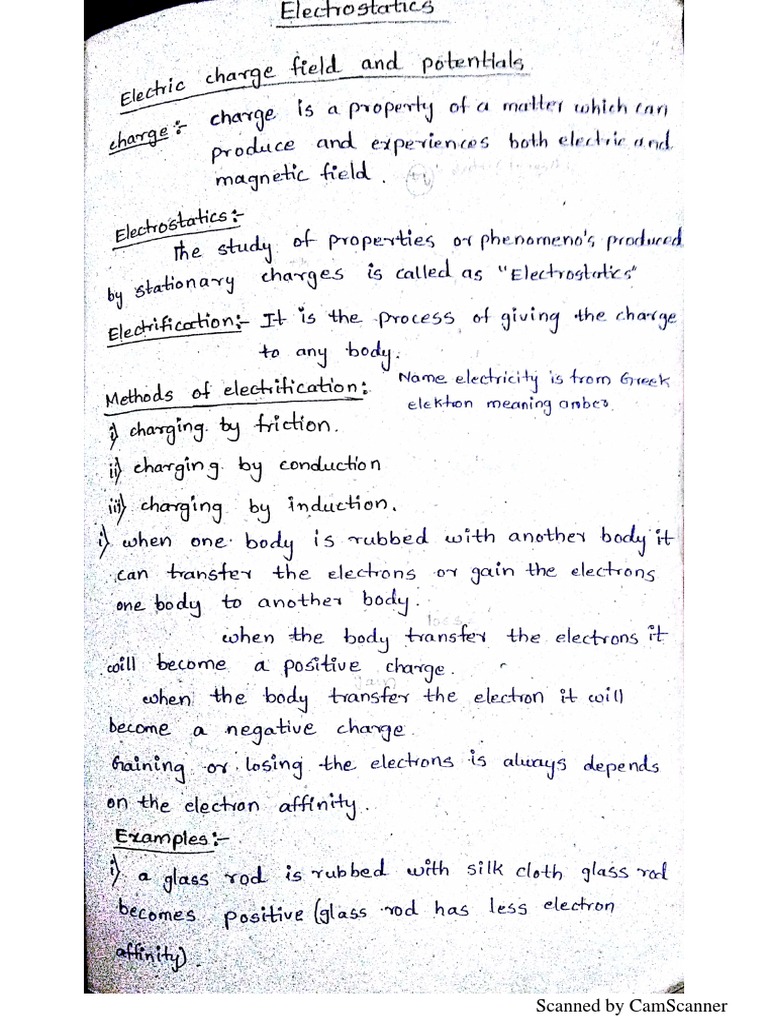 Electrostatics
Electric charge field and potentials
charge:- charge is a property of a matter which can
produce and experiences both electric and
magnetic field.
Electrostatics:-
the study of properties or phenomeno's produced
by stationary charges is called as "Electrostatics"
Electrification:- It is the process of giving the charge
to any body.
Methods of electrification:
Name electricity is from Greek
elektron meaning amber.
i) charging by friction.
ii) charging by conduction
iii) charging by induction.
i) when one body is rubbed with another body it
can transfer the electrons or gain the electrons
one body to another body.
loes
when the body transfer the electrons it
will become a positive charge.
gain
when the body transfer the electron it will
become a negative charge.
Gaining or losing the electrons is always depends
on the electron affinity..
Examples:-
i) a glass rod is rubbed with silk cloth glass rod
becomes positive (glass rod has less electron
affinity).
Scanned by CamScanner